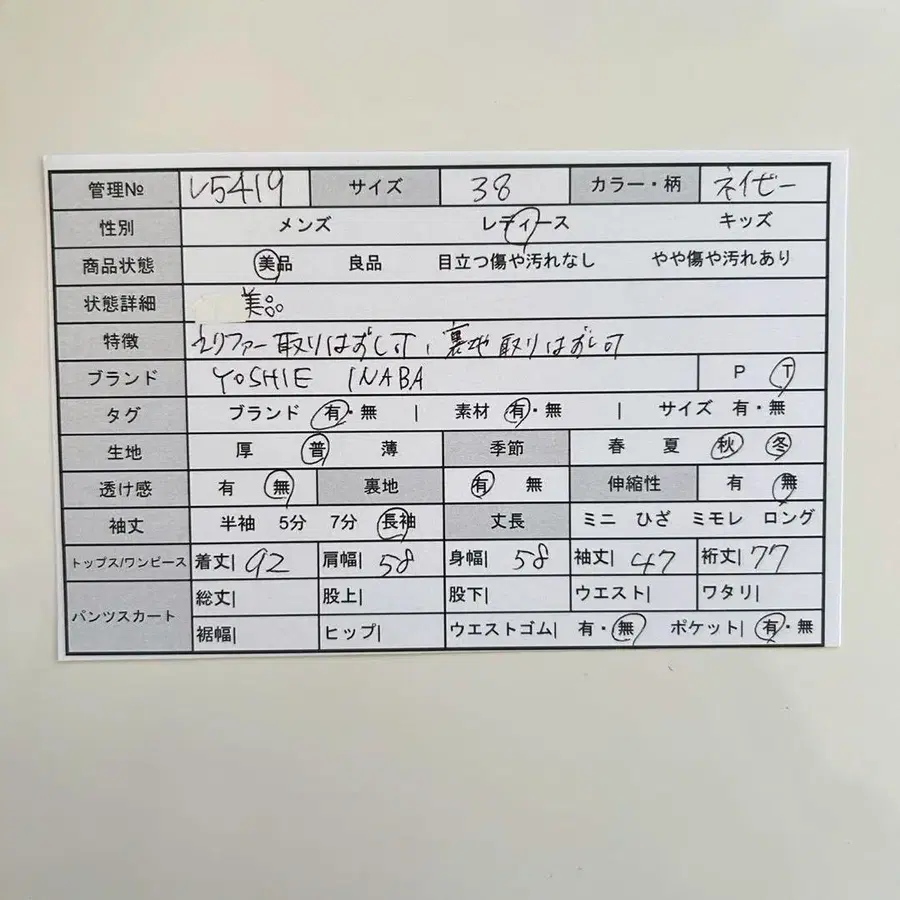 管理№ L5419 サイズ 38 カラー・柄 ネイビー
性別 メンズ レディース キッズ
商品状態 美品 良品 目立つ傷や汚れなし やや傷や汚れあり
状態詳細 美品
特徴 えりファー取りはずし可、裏地取りはずし可
ブランド YOSHIE INABA P T
タグ ブランド 有・無 | 素材 有・無 | サイズ 有・無
生地 厚 普 薄 季節 春 夏 秋 冬
透け感 有 無 裏地 有 無 伸縮性 有 無
袖丈 半袖 5分 7分 長袖 丈長 ミニ ひざ ミモレ ロング
トップス/ワンピース 着丈| 92 肩幅| 58 身幅| 58 袖丈| 47 裄丈| 77
パンツスカート 総丈| 股上| 股下| ウエスト| ワタリ|
裾幅| ヒップ| ウエストゴム| 有・無 ポケット| 有・無